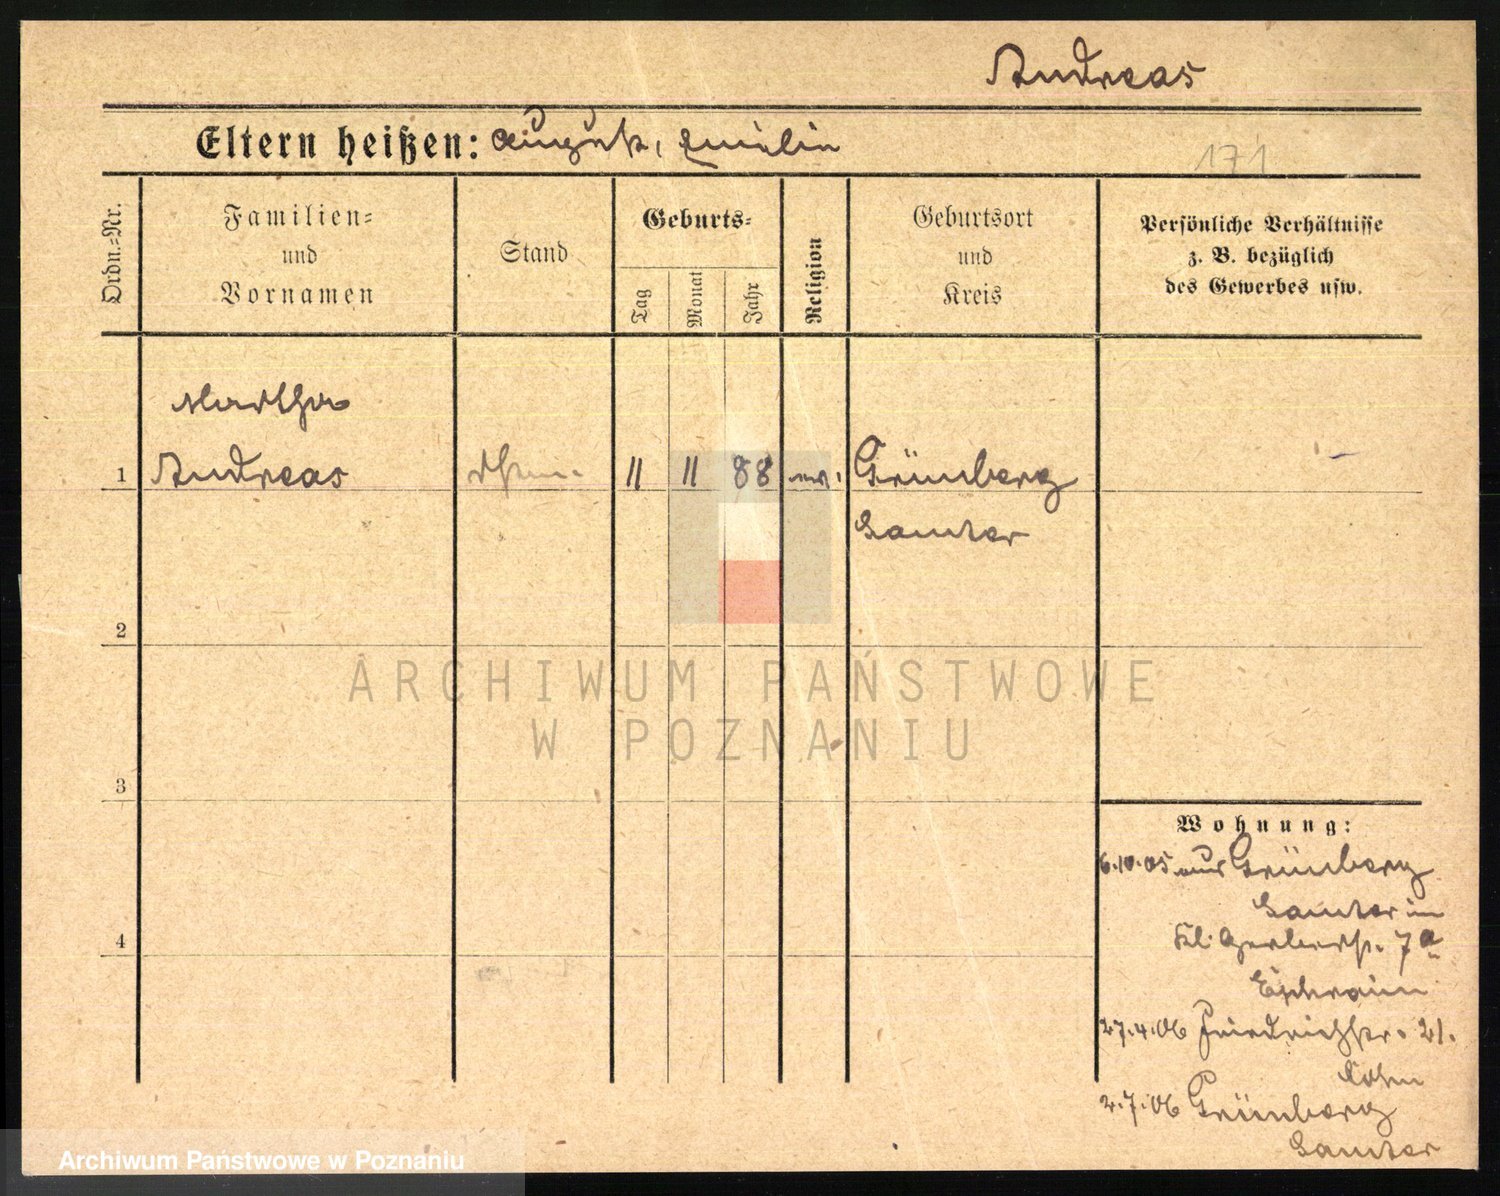 Andreas
Eltern heißen: August, Emilie
171
Ordn.=Nr.
Familien=
und
Vornamen
Stand
Geburts=
Tag
Monat
Jahr
Religion
Geburtsort
und
Kreis
Persönliche Verhältnisse
z. B. bezüglich
des Gewerbes usw.
Martha
1 Andreas 11 11 88 Grünberg
Samter
2
ARCHIWUM PAŃSTWOWE
W POZNANIU
3
Wohnung:
6.10.05 aus Grünberg
Samter in
4
Kl. Gerberstr. 7a
Ephraim
27.4.06 Friedrichstr. 21.
Cohn
2.7.06 Grünberg
Samter
Archiwum Państwowe w Poznaniu